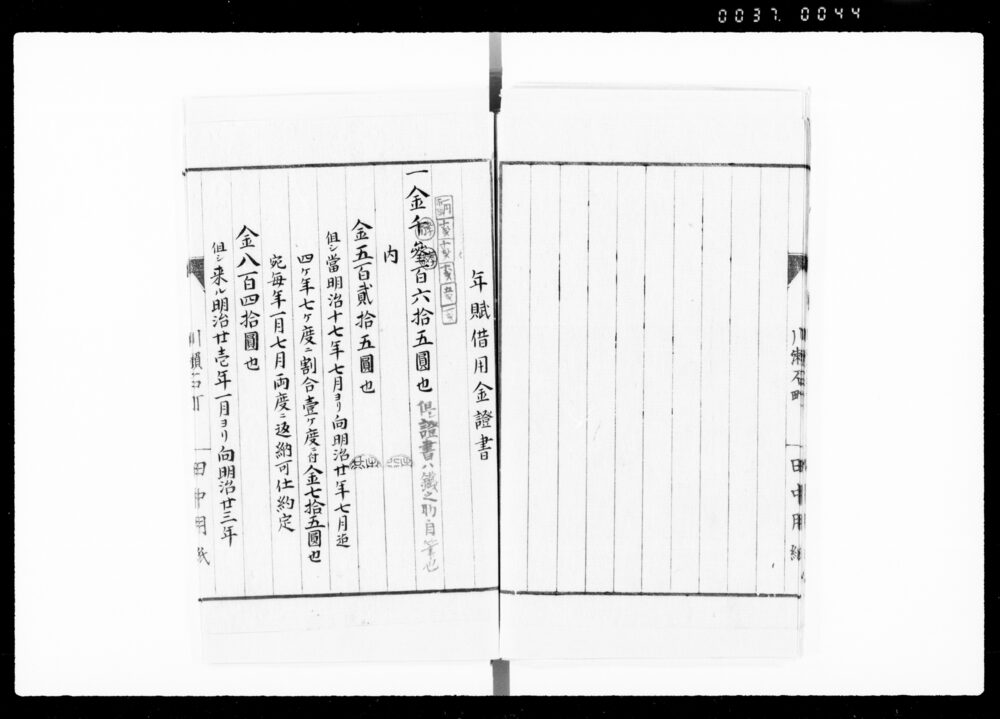 0037 0044
年賦借用金證書
一金千參百六拾五圓也 但證書ハ鐵之助自筆也
内
金五百貳拾五圓也
但シ當明治十七年七月ヨリ向明治廿年七月迄
四ケ年七ケ度ニ割合壹ケ度ニ付金七拾五圓也
宛毎年一月七月両度ニ返納可仕約定
金八百四拾圓也
但シ来ル明治廿壱年一月ヨリ向明治廿三年
田中用紙
田中用紙